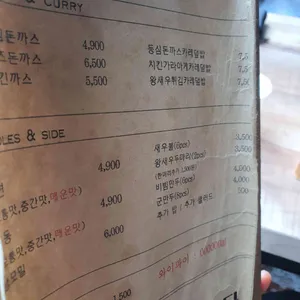 & CURRY
심돈까스 4,900 등심돈까스카레덮밥
즈돈까스 6,500 치킨가라아게카레덮밥
킨까스 5,500 왕새우튀김카레덮밥
DLES & SIDE
새우볼(6pcs) 3,500
4,900 왕새우두마리(2pcs) 3,500
통맛,중간맛,매운맛) 4,900 비빔만두(6pcs) 4,000
동 군만두(6pcs) 4,000
통맛,중간맛,매운맛) 6,000 추가 밥 / 추가 샐러드 500
와이파이
1,500